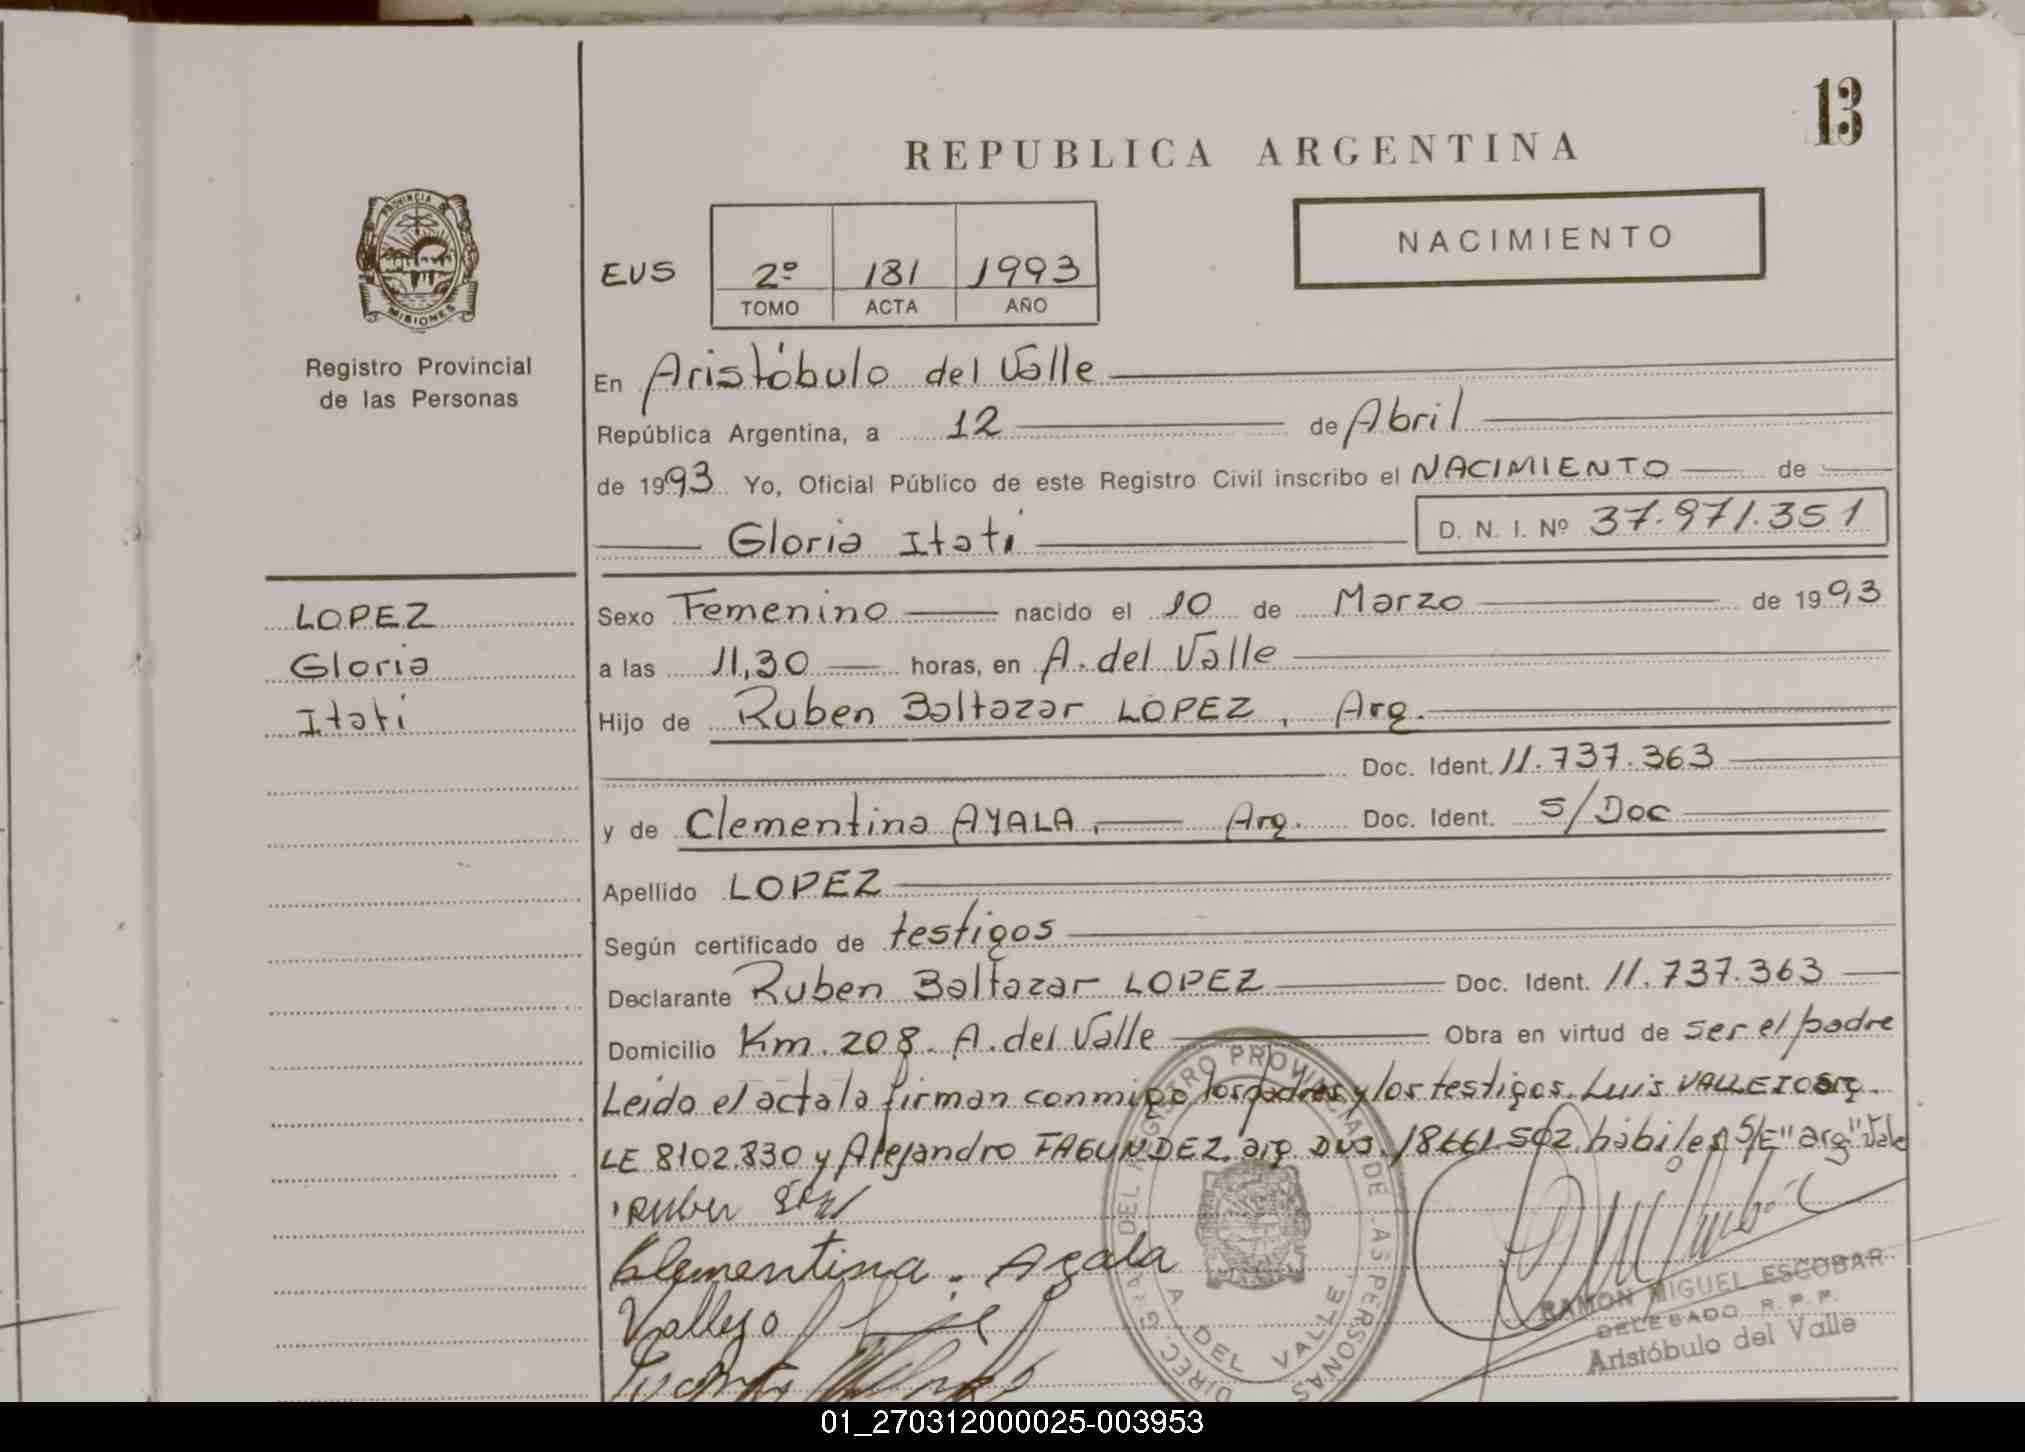 13
REPUBLICA ARGENTINA
PROVINCIA DE
MISIONES
Registro Provincial
de las Personas
NACIMIENTO
EUS 2º 181 1993
TOMO ACTA AÑO
En Aristóbulo del Valle
República Argentina, a 12 de Abril
de 1993 Yo, Oficial Público de este Registro Civil inscribo el NACIMIENTO de
Gloria Itati D. N. I. Nº 37.971.351
LOPEZ
Gloria
Itati
Sexo Femenino nacido el 10 de Marzo de 1993
a las 11,30 horas, en A. del Valle
Hijo de Ruben Baltazar LOPEZ, Arg.
Doc. Ident. 11.737.363
y de Clementina AYALA, Arg. Doc. Ident. S/Doc
Apellido LOPEZ
Según certificado de testigos
Declarante Ruben Baltazar LOPEZ Doc. Ident. 11.737.363
Domicilio Km. 208. A. del Valle Obra en virtud de ser el padre
Leida el acta la firman conmigo los padres y los testigos. Luis VALLEJOS arg.
LE 8102.830 y Alejandro FAGUNDEZ. arg DNI. 18661.502. hábiles S/E "arg" Vale
Ruben
Clementina. Ayala
Vallejo
DIREC. GRAL DEL REGISTRO PROVINCIAL DE LAS PERSONAS
A. DEL VALLE
RAMON MIGUEL ESCOBAR
DELEGADO R.P.P.
Aristóbulo del Valle
01_270312000025-003953